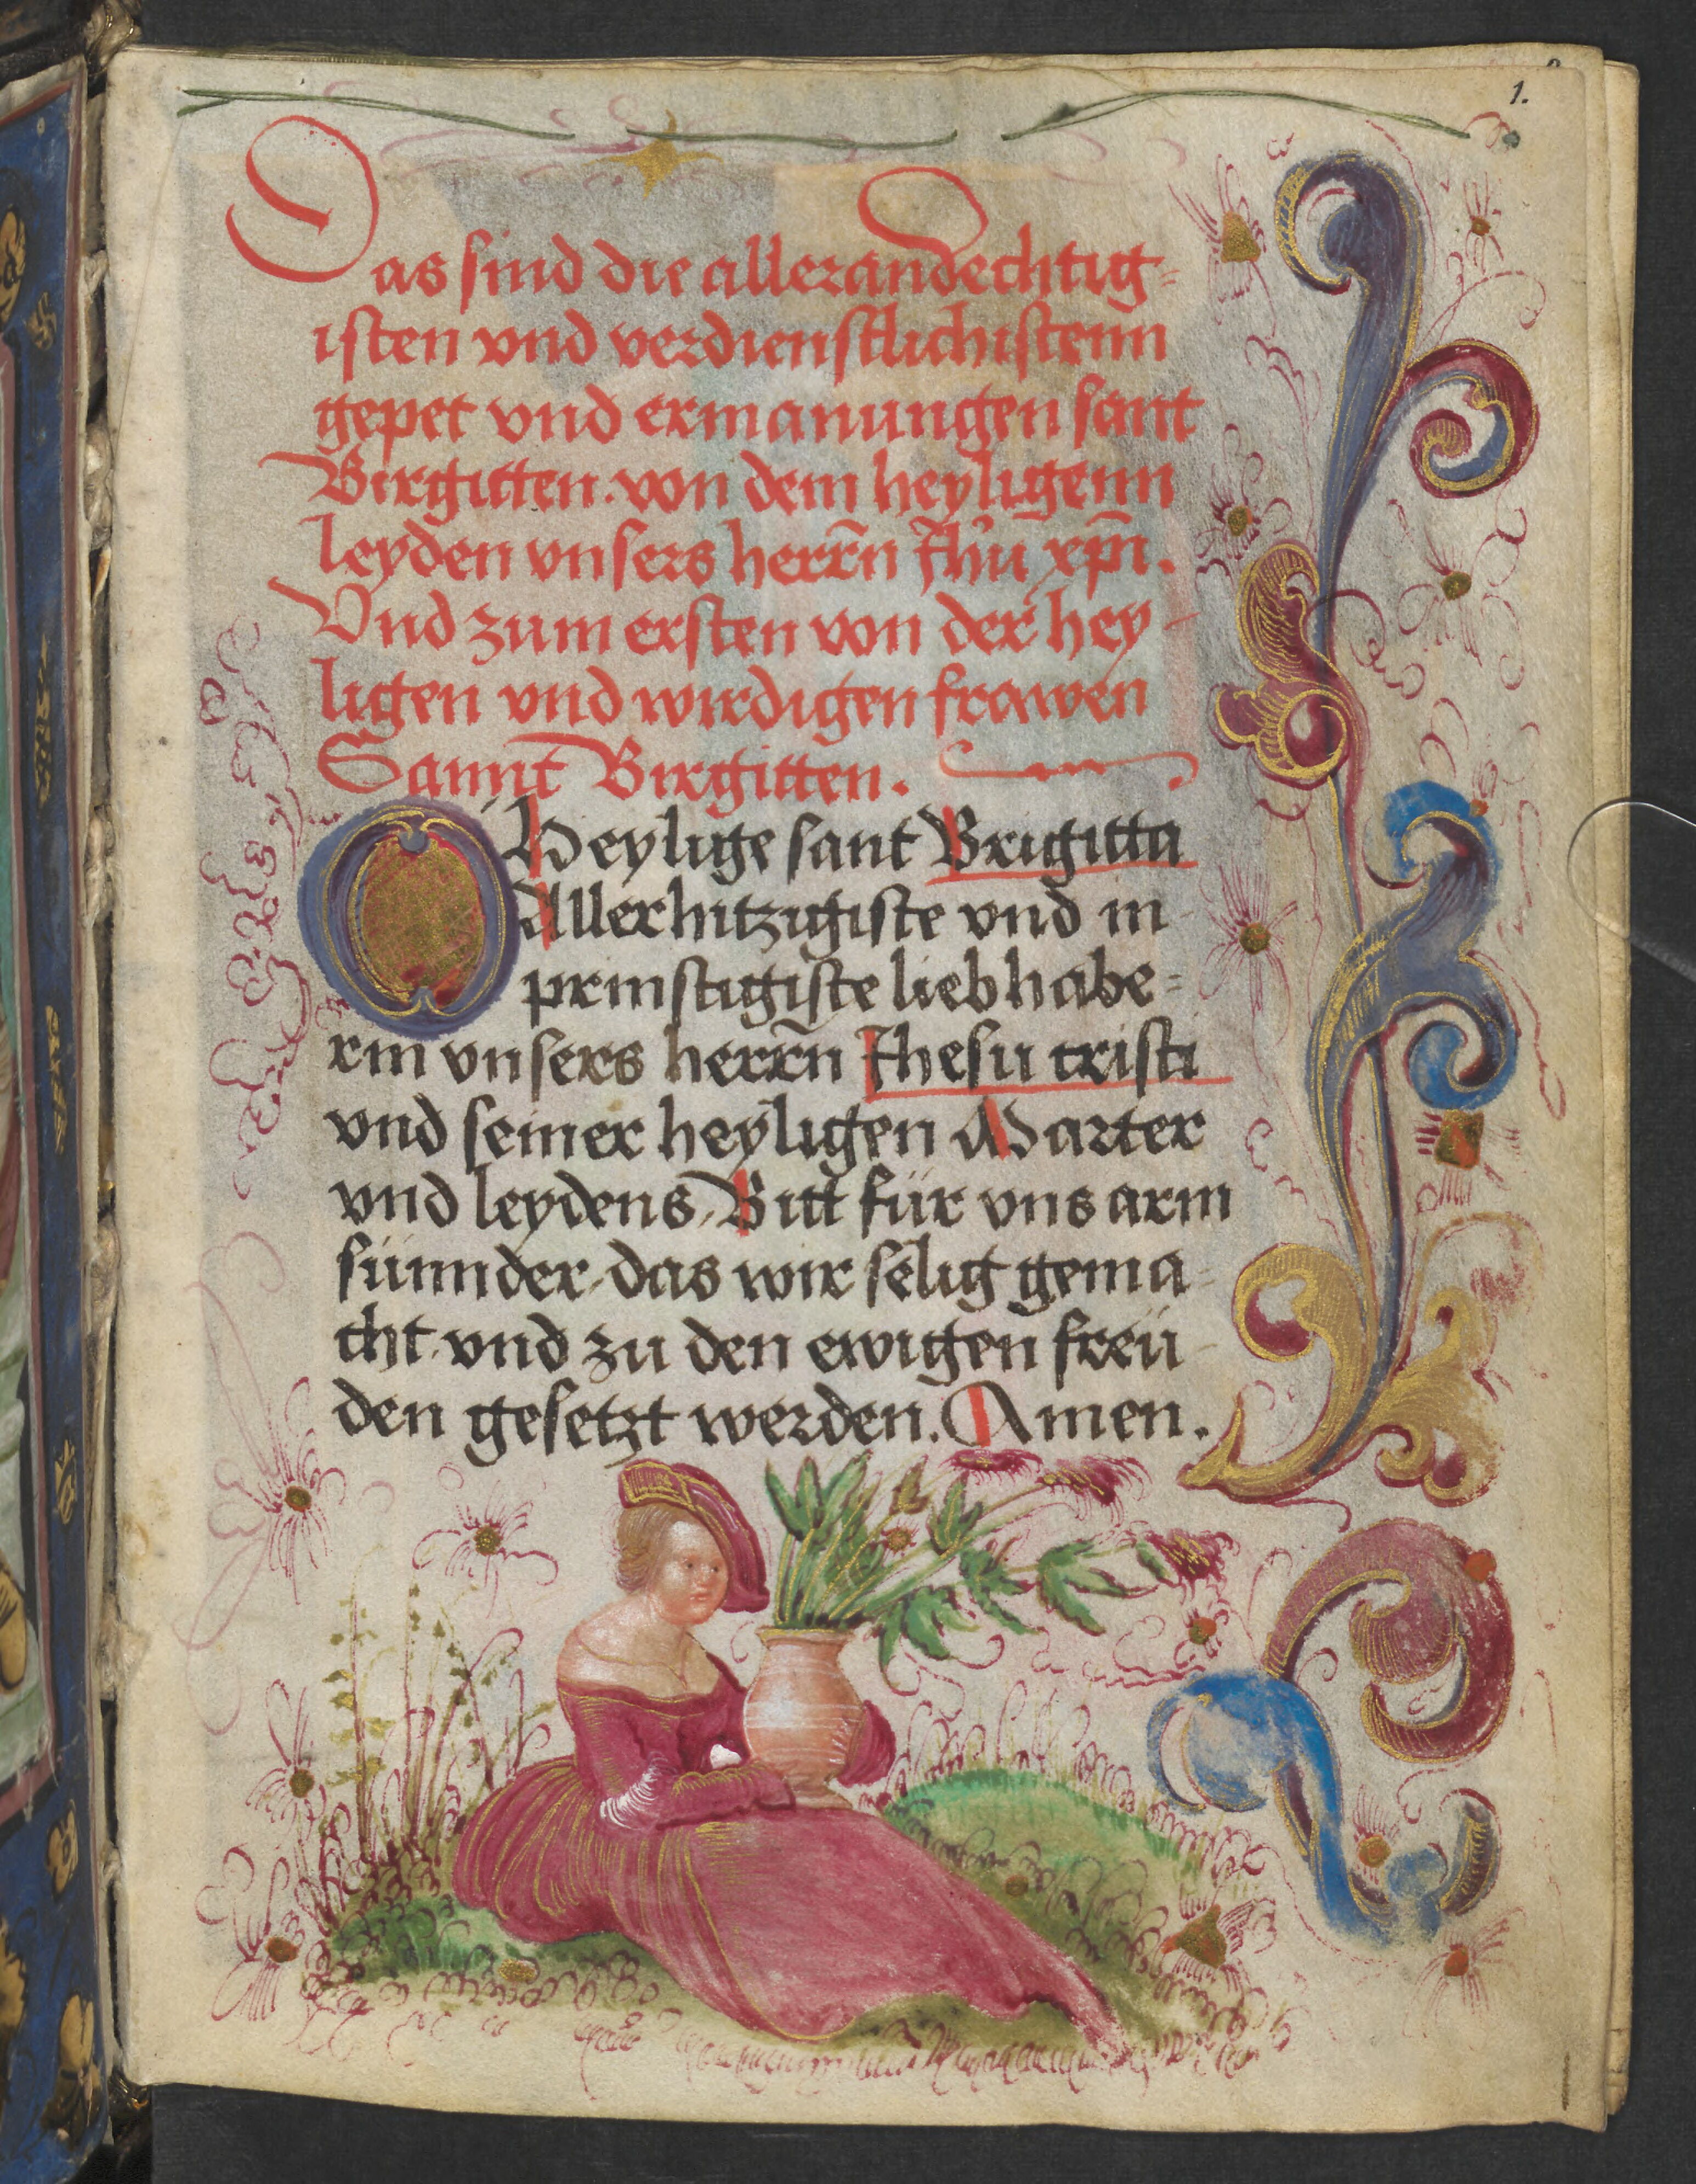 1.
Das sind die allerandechtig=
isten vnd verdienstlichistenn
gepet vnd ermanungen sant
Birgitten. von dem heyligenn
leyden vnsers herrn̄ Jhū xp̄i.
Vnd zum ersten von der hey-
ligen vnd wirdigen frawen
Sannt Birgitten.
O Heylige sant Brigitta
Allerhitzigiste vnd in-
prinstigiste liebhabe=
rin vnsers herrn̄ Jhesu cristi
vnd seiner heyligen Marter
vnd leydens, Bitt für vns arm
sünnder, das wir sëlig gema-
cht, vnd zu den ewigen freü-
den gesetzt werden. Amen.